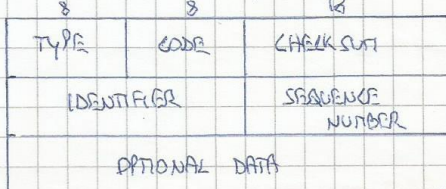 8 8 16
TYPE CODE CHECKSUM
IDENTIFIER SEQUENCE
NUMBER
OPTIONAL DATA